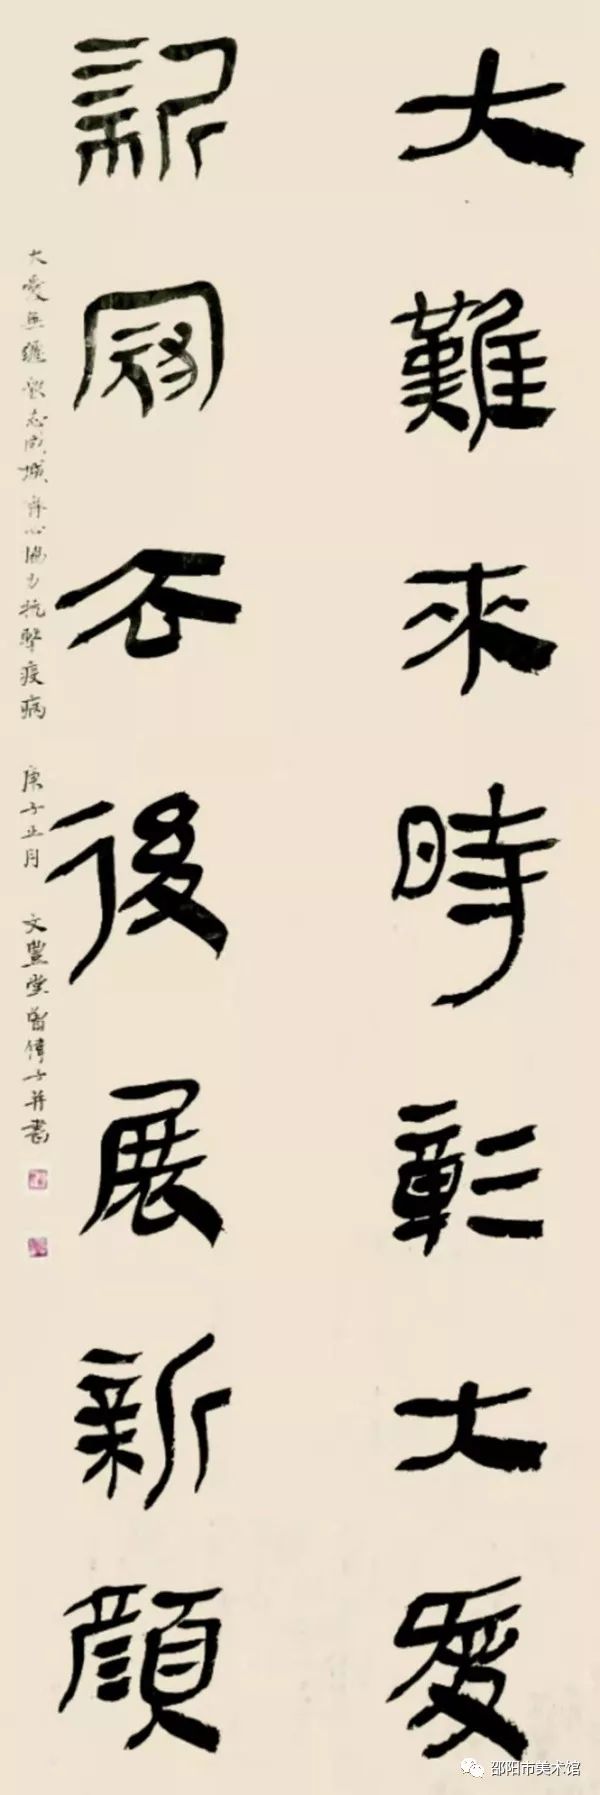 大難來時彰大愛
新冠去後展新顏
大愛無疆眾志成城齊心協力抗擊疫病 庚子正月 文豐堂曾偉子并書
邵阳市美术馆